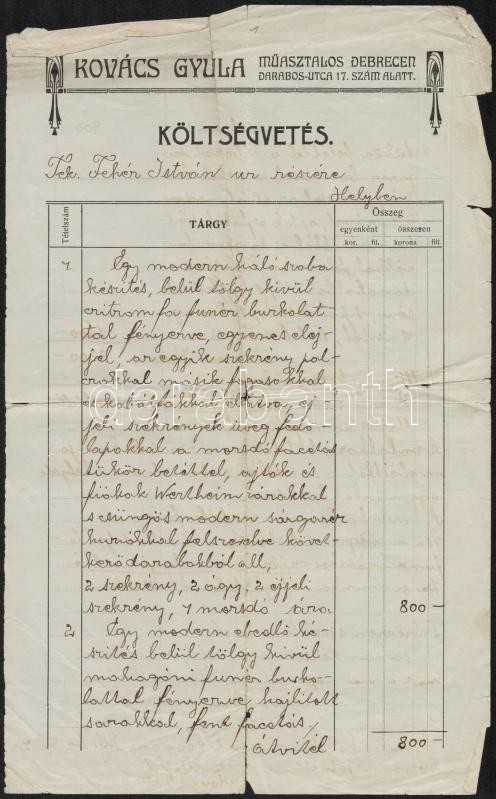 1.
KOVÁCS GYULA MŰASZTALOS DEBRECEN
DARABOS-UTCA 17. SZÁM ALATT.
KÖLTSÉGVETÉS.
Tek. Fehér István ur részére
Helyben
Tételszám TÁRGY Összeg
egyenként összesen
kor. fil. korona fill.
1 Egy modern háló szoba
készités, belül tölgy kivül
citromfa funér burkolat
tal fényezve, egyenes elej-
jel, az egyik szekrény pol-
cokkal másik fogasokkal
s kabátfákkal ellátva, éj-
jeli szekrények üveg fedő
lapokkal a mosdó facetás
tükör betéttel, ajtók és
fiókok Wertheim zárakkal
s csüngős modern sárgaréz
huzókkal felszerelve követ-
kező darabokból áll,
2 szekrény, 2 ágy, 2 éjjeli
szekrény, 1 mosdó ára 800 –
2 Egy modern ebédlő ké-
szités belül tölgy kivül
mahagóni funér burko-
lattal fényezve hajlitott
sarokkal, fent facetás /
átvitel 800 –
darabanth